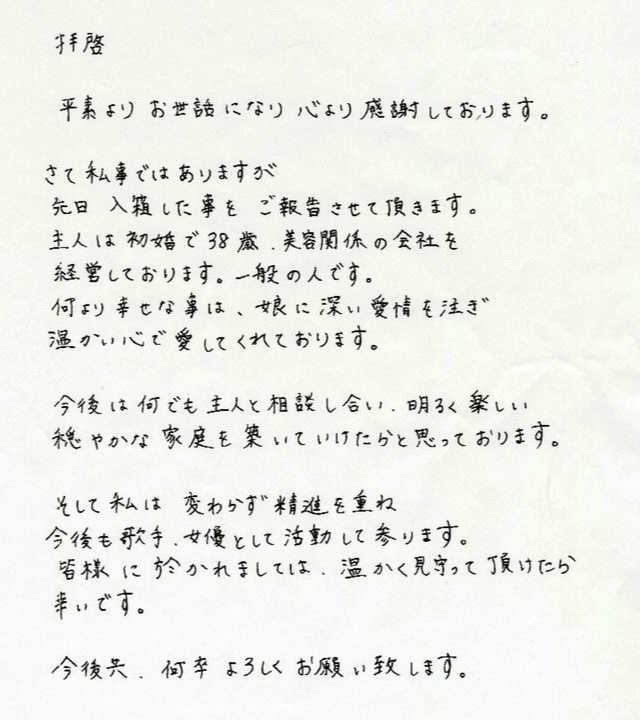 拝啓
平素より お世話になり 心より感謝しております。
さて私事ではありますが
先日 入籍した事を ご報告させて頂きます。
主人は初婚で38歳、美容関係の会社を
経営しております。一般の人です。
何より幸せな事は、娘に深い愛情を注ぎ
温かい心で愛してくれております。
今後は何でも主人と相談し合い、明るく楽しい
穏やかな家庭を築いていけたらと思っております。
そして私は 変わらず精進を重ね
今後も歌手、女優として活動して参ります。
皆様に於かれましては、温かく見守って頂けたら
幸いです。
今後共、何卒よろしくお願い致します。